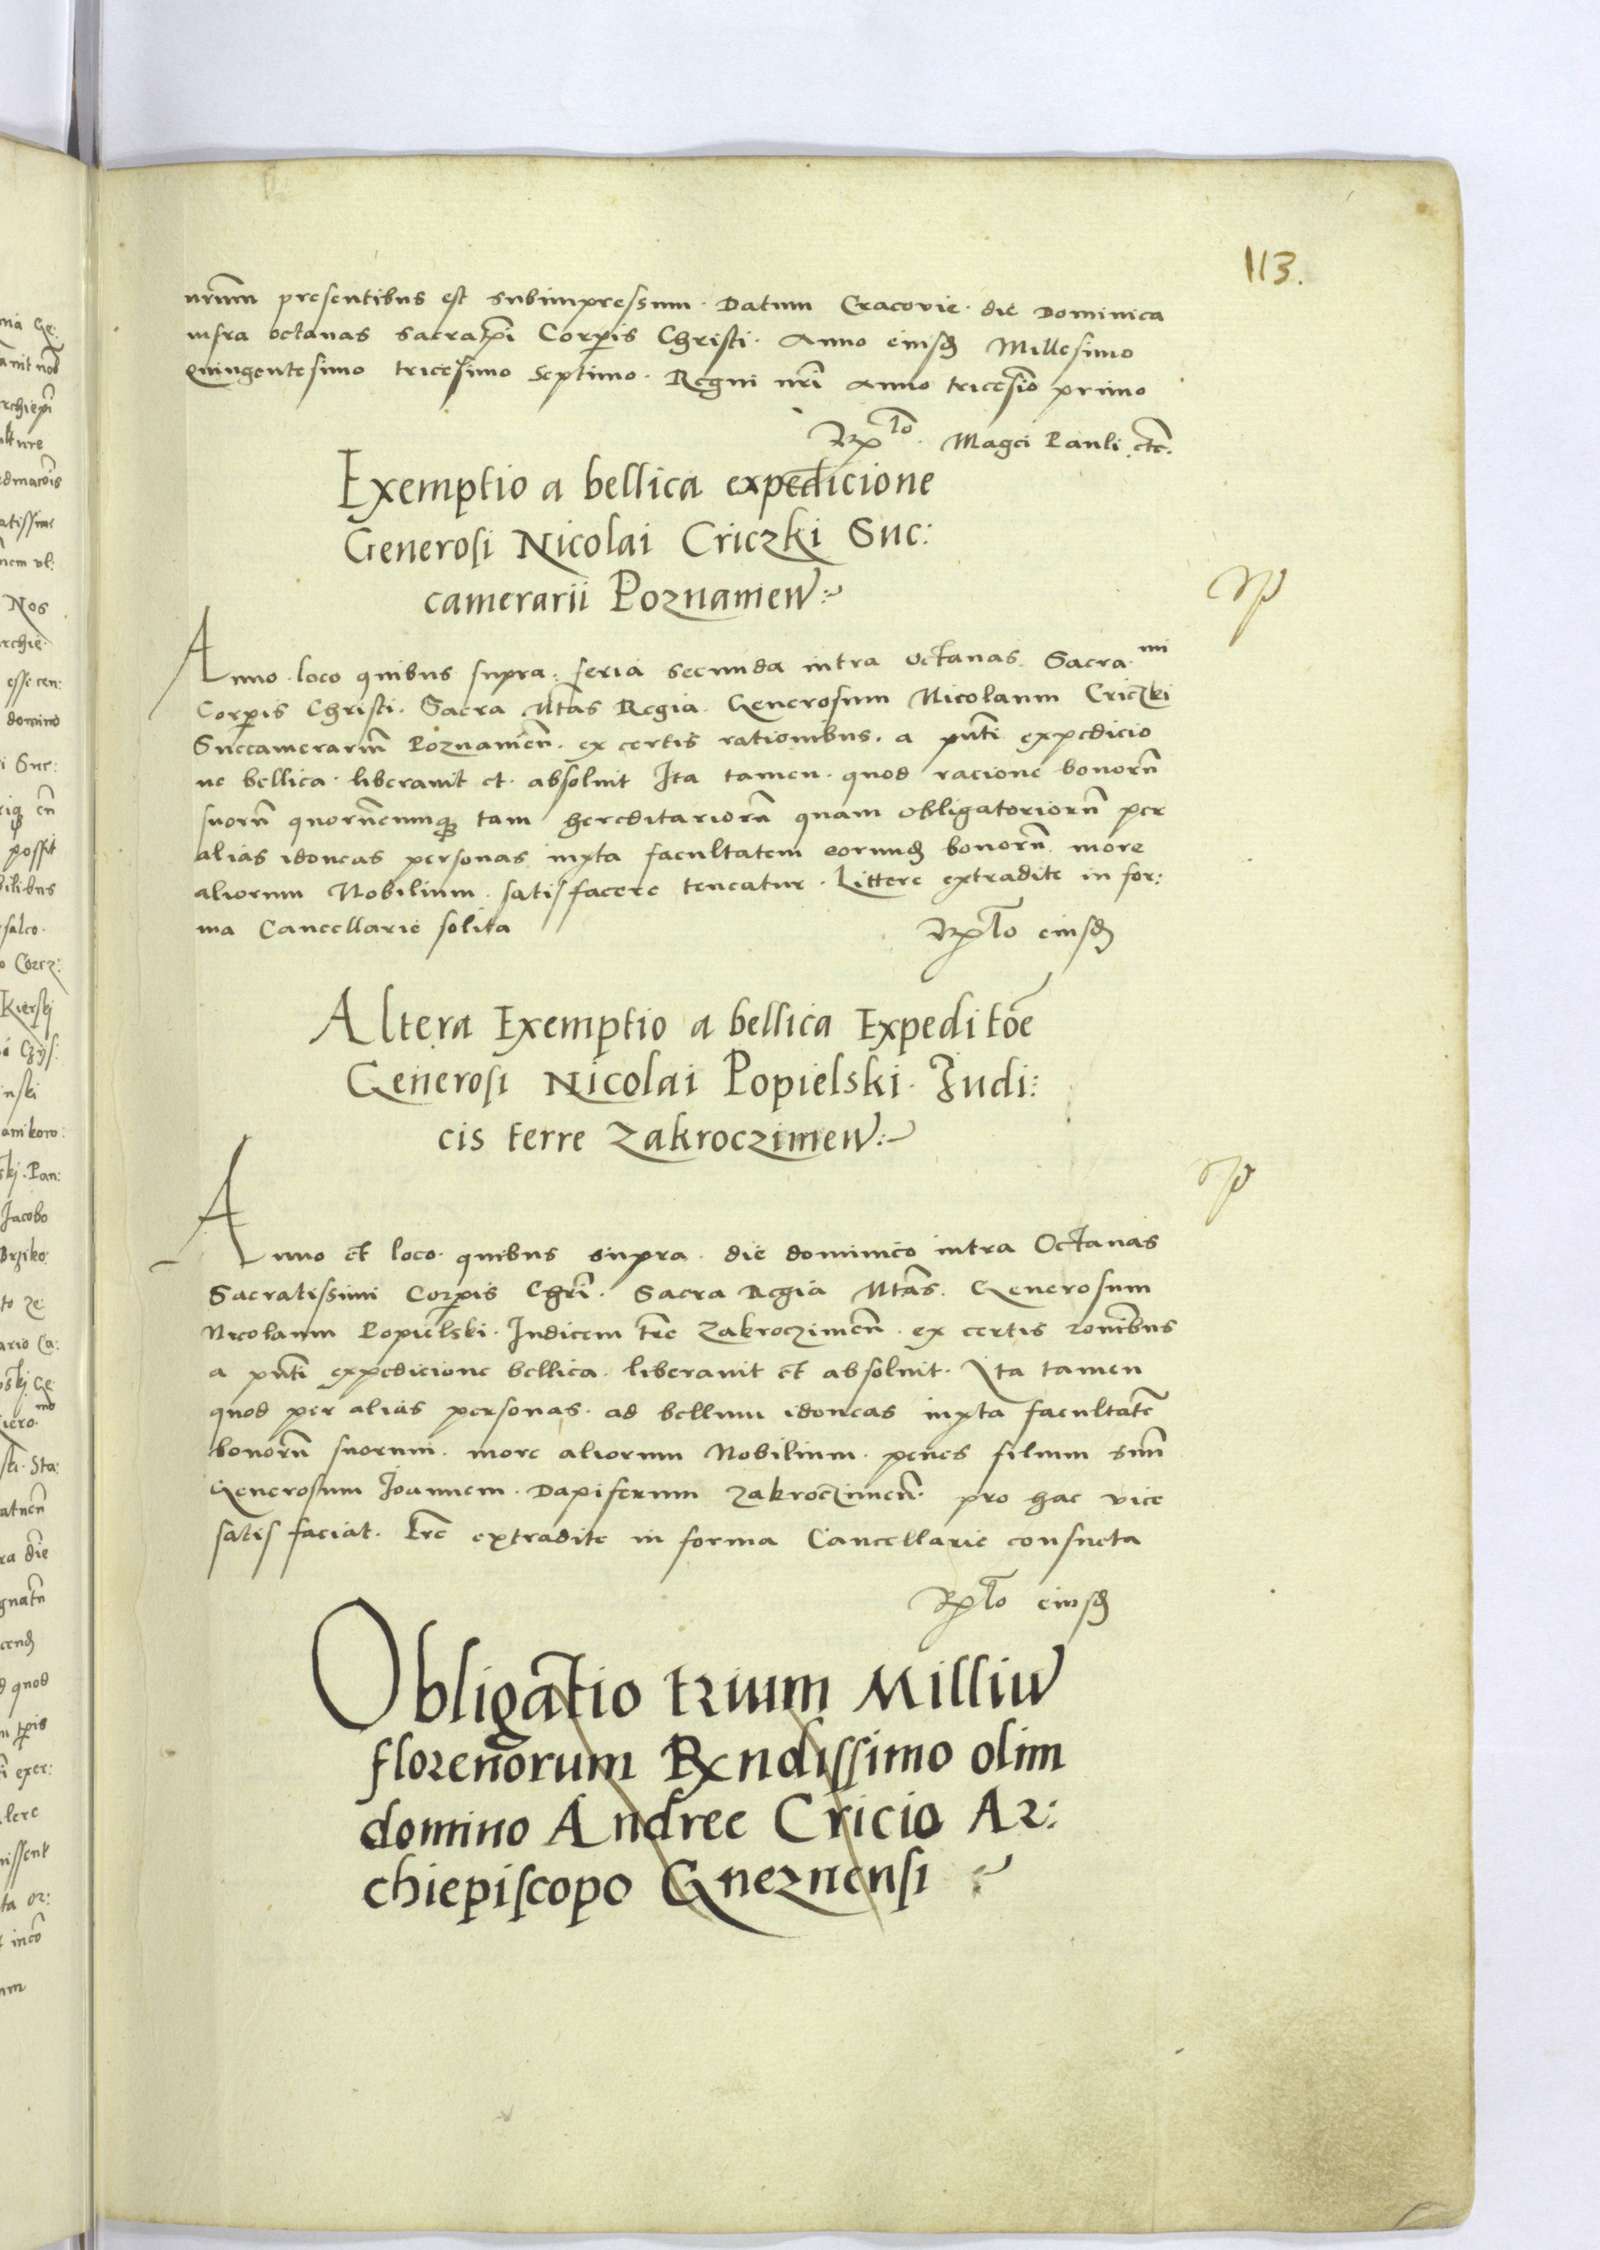 113.
nrum presentibus est subimpressum. Datum Cracovie. die Dominica
infra octauas sacratmi Corporis Christi. Anno eiusd Millesimo
Quingentesimo tricesimo Septimo. Regni nri Anno tricesimo primo
Rplo. Magci Pauli etc.
Exemptio a bellica expedicione
Generosi Nicolai Criczki Suc:
camerarii Poznamen
Anno. loco quibus supra: feria secunda intra octauas Sacra mi
Corporis Christi. Sacra Mtas Regia. Generosum Nicolaum Criczki
Succamerarium Poznamen. ex certis rationibus. a pnti expedicio
ne bellica. liberauit et. absoluit Ita tamen. quod racione bonorum
suorum quorumcumque tam hereditariorum quam obligatoriorum per
alias idoneas personas iuxta facultatem eorumd bonorum more
aliorum Nobilium. satisfacere teneatur. Littere extradite in for:
ma Cancellarie solita
Rplo eiusd
Altera Exemptio a bellica Expeditõe
Generosi Nicolai Popielski. Judi:
cis terre Zakroczimen
Anno et loco. quibus supra. die dominico intra Octauas
Sacratissimi Corporis Chri. Sacra Regia Mtas. Generosum
Nicolaum Popielski. Iudicem tre Zakroczimen. ex certis ronibus
a pnti expedicione bellica. liberauit et absoluit. Ita tamen
quod per alias personas. ad bellum idoneas iuxta facultate
bonorum suorum. more aliorum Nobilium. penes filium suum
Generosum Joannem. Dapiferum Zakroczimen. pro hac vice
satis faciat. Lre extradite in forma Cancellarie consueta
Rplo eiusd
Obligatio trium Milliu
florenorum Rxndissimo olim
domino Andree Cricio Ar:
chiepiscopo Gneznensi